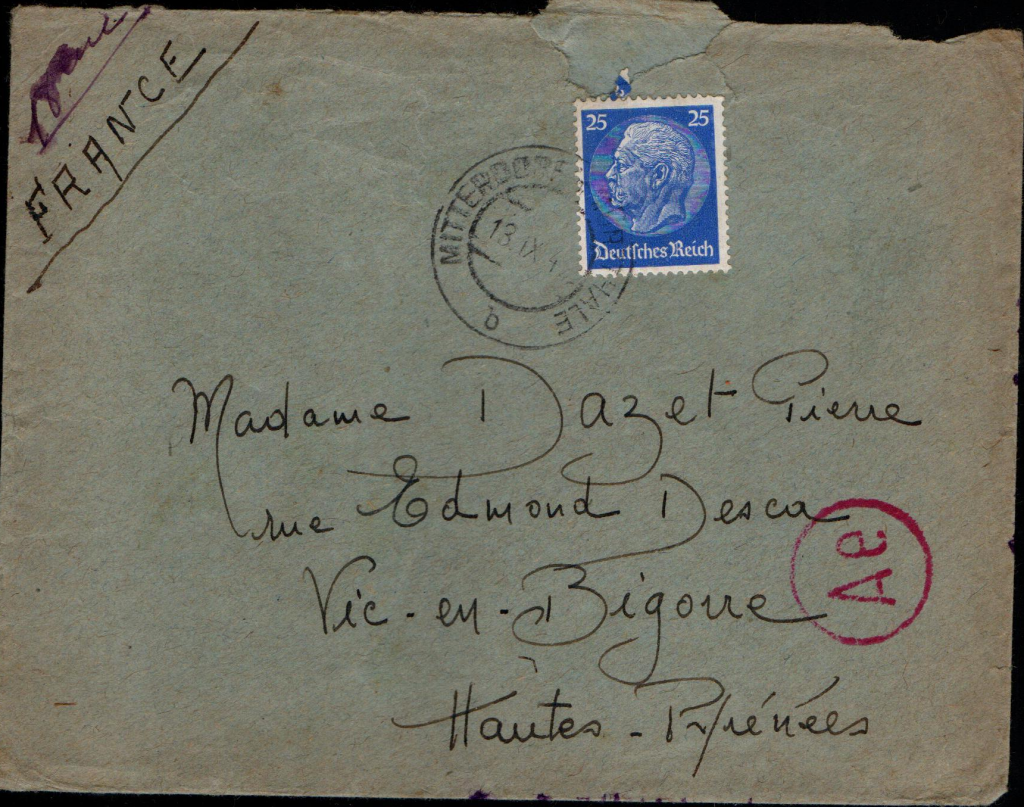 FRANCE
25 25
Deutsches Reich
MITTERDORF
13. IX. 4
b
Madame Dazet Pierre
rue Edmond Desca
Vic-en-Bigorre
Hautes-Pyrénées
Ae